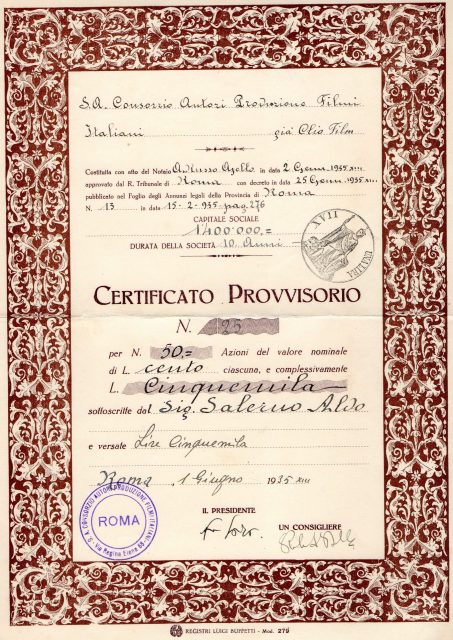 S.A. Consorzio Autori Produzione Films
Italiani già Clio Film
Costituita con atto del Notaio A. Russo Ajello in data 2 Genn. 1935 XIII
approvato dal R. Tribunale di Roma con decreto in data 25 Genn. 1935 XIII
pubblicato nel Foglio degli Annunzi legali della Provincia di Roma
N. 13 in data 15-2-935-pag. 276
CAPITALE SOCIALE
1400.000,=
DURATA DELLA SOCIETÀ 10 Anni
XVII
CERTIFICATO PROVVISORIO
N. 25
per N. 50,= Azioni del valore nominale
di L. cento ciascuna, e complessivamente
L. Cinquemila
sottoscritte dal Sig. Salerno Aldo
e versate Lire Cinquemila
Roma 1 Giugno 1935 XIII
IL PRESIDENTE
UN CONSIGLIERE
S.A. CONSORZIO AUTORI PRODUZIONE FILMI ITALIANI
Via Regina Elena 68
ROMA
REGISTRI LUIGI BUFFETTI - Mod. 279